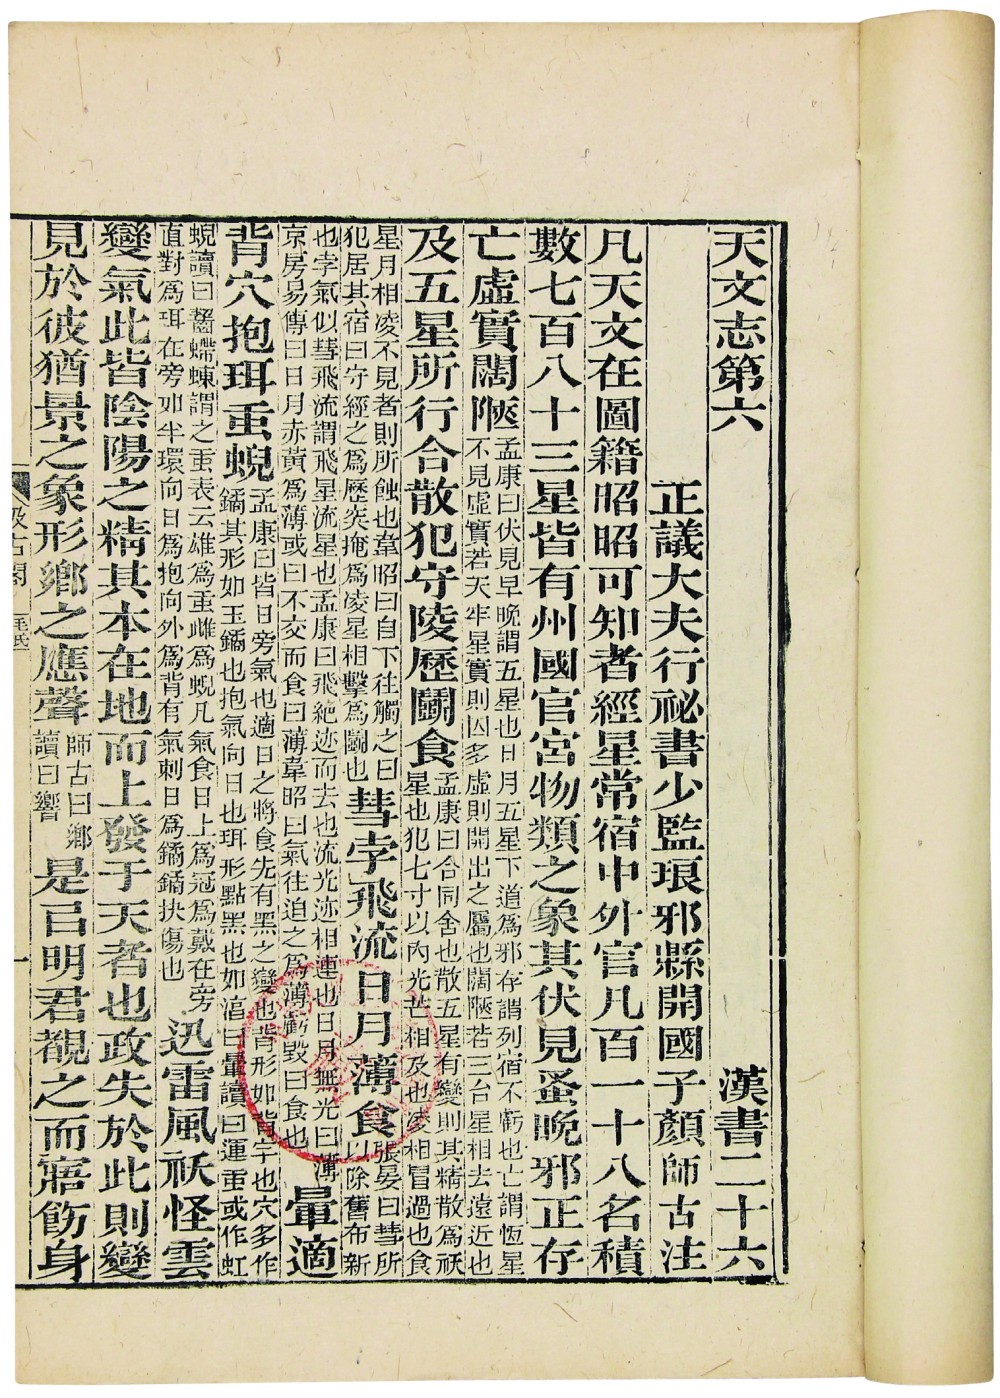 天文志第六　漢書二十六
正議大夫行祕書少監琅邪縣開國子顏師古注
凡天文在圖籍昭昭可知者經星常宿中外官凡百一十八名積
數七百八十三星皆有州國官宮物類之象其伏見蚤晚邪正存
亡虛實闊陿
孟康曰伏見早晚謂五星也日月五星下道爲邪存謂列宿不虧也亡謂恆星
不見虛實若天牢星實則囚多虛則開出之屬也闊陿若三台星相去遠近也
及五星所行合散犯守陵歷鬭食
孟康曰合同舍也散五星有變則其精散爲祅
星也犯七寸以內光芒相及也凌相冒過也食
星月相凌不見者則所蝕也韋昭曰自下往觸之曰
犯居其宿曰守經之爲歷突掩爲凌星相擊爲鬭也
彗孛飛流日月薄食
張晏曰彗所
以除舊布新
也孛氣似彗飛流謂飛星流星也孟康曰飛絕迹而去也流光迹相連也日月無光曰薄
京房易傳曰日月赤黃爲薄或曰不交而食曰薄韋昭曰氣往迫之爲薄虧毀曰食也
暈適
背穴抱珥䖝蜺
孟康曰皆日旁氣也適日之將食先有黑之變也背形如背字也穴多作
鐍其形如玉鐍也抱氣向日也珥形點黑也如淳曰暈讀曰運䖝或作虹
蜺讀曰齧螮蝀謂之䖝表云雄爲䖝雌爲蜺凡氣食日上爲冠爲戴在旁
直對爲珥在旁如半環向日爲抱向外爲背有氣刺日爲鐍鐍抉傷也
迅雷風祅怪雲
變氣此皆陰陽之精其本在地而上發于天者也政失於此則變
見於彼猶景之象形鄉之應聲
師古曰鄉
讀曰響
是㠯明君覩之而寤飭身
汲古閣　毛氏
一